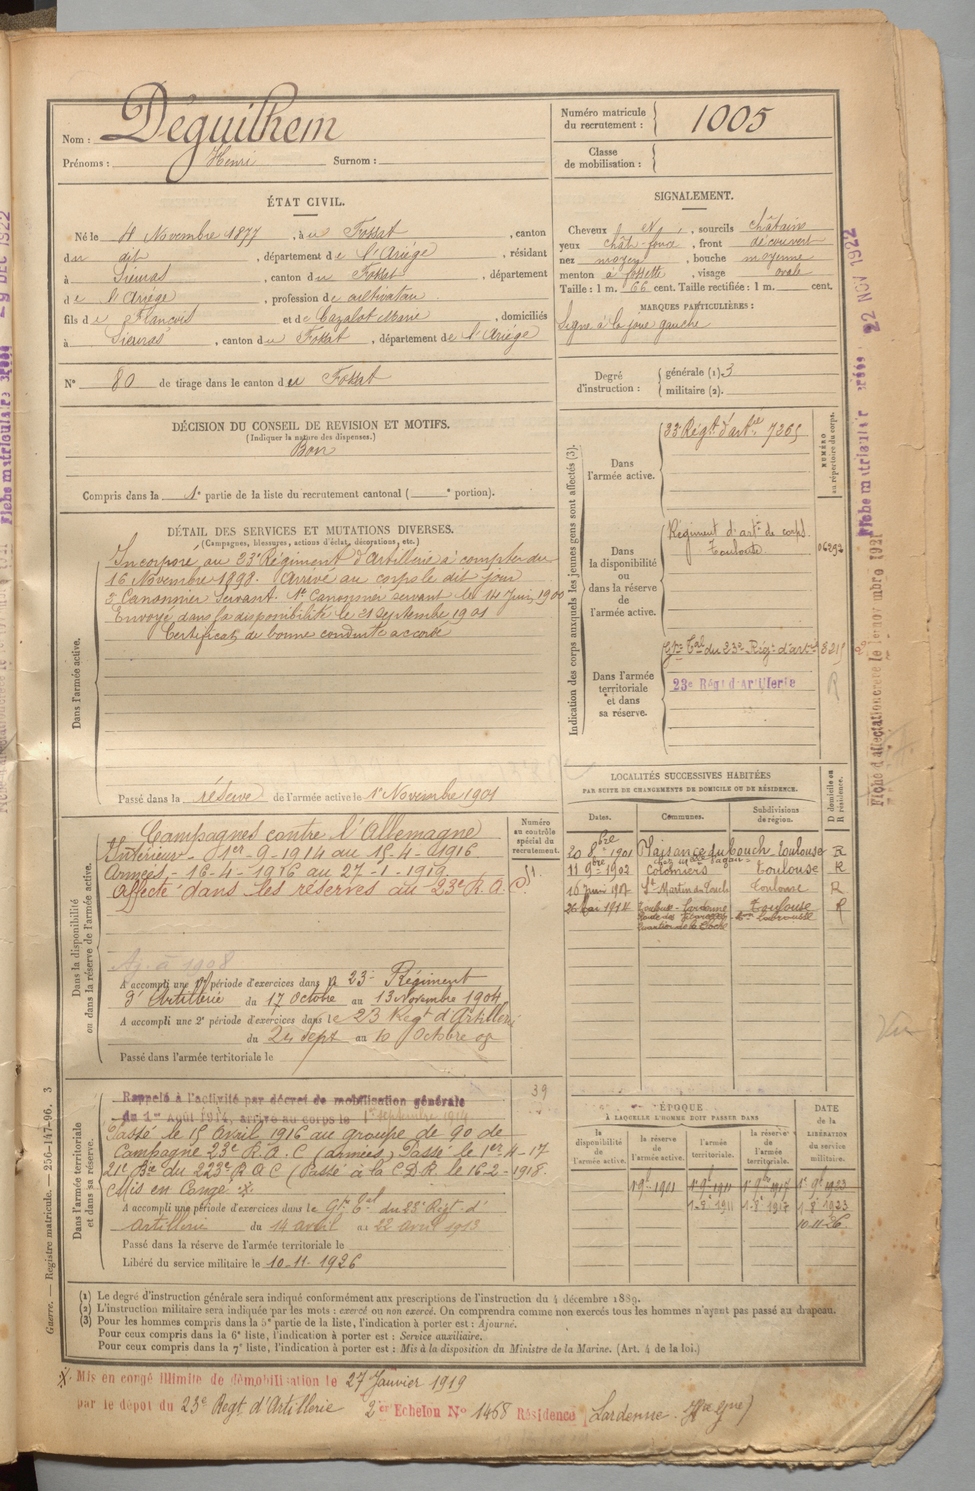 Nom : Déguilhem
Prénoms : Henri Surnom :
Numéro matricule du recrutement : 1005
Classe de mobilisation :
ÉTAT CIVIL.
Né le 4 Novembre 1877, à u Fossat, canton
du dit, département de l'Ariège, résidant
à Sieuras, canton du Fossat, département
de l'Ariège, profession de cultivateur
fils de François et de Cazalot Marie, domiciliés
à Sieuras, canton du Fossat, département de l'Ariège
N° 80 de tirage dans le canton du Fossat
SIGNALEMENT.
Cheveux, sourcils châtains
yeux chât-foncé, front découvert
nez moyen, bouche moyenne
menton à fossette, visage ovale
Taille : 1 m. 66 cent. Taille rectifiée : 1 m. cent.
MARQUES PARTICULIÈRES :
Signe à la joue gauche
Degré d'instruction : générale (1) 3
militaire (2).
DÉCISION DU CONSEIL DE REVISION ET MOTIFS.
(Indiquer la nature des dispenses.)
Bon
Compris dans la 1e partie de la liste du recrutement cantonal ( e portion).
DÉTAIL DES SERVICES ET MUTATIONS DIVERSES.
(Campagnes, blessures, actions d'éclat, décorations, etc.)
Dans l'armée active.
Incorporé au 23e Régiment d'Artillerie à compter du
16 Novembre 1898. Arrivé au corps le dit jour
2e Canonnier Servant. 1er Canonnier servant le 14 Juin 1900
Envoyé dans la disponibilité le 21 Septembre 1901
Certificat de bonne conduite accordé
Passé dans la réserve de l'armée active le 1er Novembre 1901
Indication des corps auxquels les jeunes gens sont affectés (3).
NUMÉRO au répertoire du corps.
Dans l'armée active.
23e Régt d'artie 7265
Dans la disponibilité ou dans la réserve de l'armée active.
Régiment d'artie de corps
Toulouse
06292
Dans l'armée territoriale et dans sa réserve.
Gpe Tal du 23e Régt d'artie 8215
23e Régt d'Artillerie
R
LOCALITÉS SUCCESSIVES HABITÉES
PAR SUITE DE CHANGEMENTS DE DOMICILE OU DE RÉSIDENCE.
Dates. Communes. Subdivisions de région. D domicile ou R résidence.
20 8bre 1901 Plaisance du Touch Toulouse R
11 9bre 1902 Colomiers Toulouse R
16 Juin 1907 St Martin du Touch Toulouse R
26 Mai 1914 Toulouse - Lardenne Toulouse R
Numéro au contrôle spécial du recrutement.
51.
Dans la disponibilité ou dans la réserve de l'armée active.
Campagnes contre l'Allemagne
Intérieur - 1er-9-1914 au 15-4-1916
Armées - 16-4-1916 au 27-1-1919
Affecté dans les réserves au 23e R.A.C.
Aj. à 1908
A accompli une 1re période d'exercices dans le 23e Régiment
d'Artillerie du 17 Octobre au 13 Novembre 1904
A accompli une 2e période d'exercices dans le 23 Regt d'Artillerie
du 24 sept au 10 Octobre 08
Passé dans l'armée territoriale le
39
Dans l'armée territoriale et dans sa réserve.
Rappelé à l'activité par décret de mobilisation générale
du 1er Août 1914, arrivé au corps le 1er septembre 1914
Passé le 15 Avril 1916 au groupe de 90 de
Campagne 23e R.A.C (armées) Passé le 1er-4-17
21e Bie du 223e R.A.C (Passé à la C.D.R. le 16-2-1918.
Mis en Congé ·X·
A accompli une période d'exercices dans le Gpe Tal du 23e Régt d'
Artillerie du 14 avril au 22 avril 1913
Passé dans la réserve de l'armée territoriale le
Libéré du service militaire le 10-11-1926
ÉPOQUE
À LAQUELLE L'HOMME DOIT PASSER DANS
la disponibilité de l'armée active. la réserve de l'armée active. l'armée territoriale. la réserve de l'armée territoriale. DATE de la LIBÉRATION du service militaire.
1 9bre 1901 1er 9bre 1911 1er 9bre 1917 1er 9bre 1923
1-8e 1911 1-8e 1917 1 8e 1923
10-11-26.
(1) Le degré d'instruction générale sera indiqué conformément aux prescriptions de l'instruction du 4 décembre 1889.
(2) L'instruction militaire sera indiquée par les mots : exercé ou non exercé. On comprendra comme non exercés tous les hommes n'ayant pas passé au drapeau.
(3) Pour les hommes compris dans la 5e partie de la liste, l'indication à porter est : Ajourné.
Pour ceux compris dans la 6e liste, l'indication à porter est : Service auxiliaire.
Pour ceux compris dans la 7e liste, l'indication à porter est : Mis à la disposition du Ministre de la Marine. (Art. 4 de la loi.)
·X· Mis en congé illimité de démobilisation le 27 Janvier 1919
par le dépôt du 23e Regt d'Artillerie 2er Echelon N° 1468 Résidence Lardenne (Hte Gne)
Guerre. — Registre matricule. — 256-147-96. 3
Fiche matriculaire créée 22 NOV 1922
Fiche d'affectation créée le 1er novembre 1921
Vu